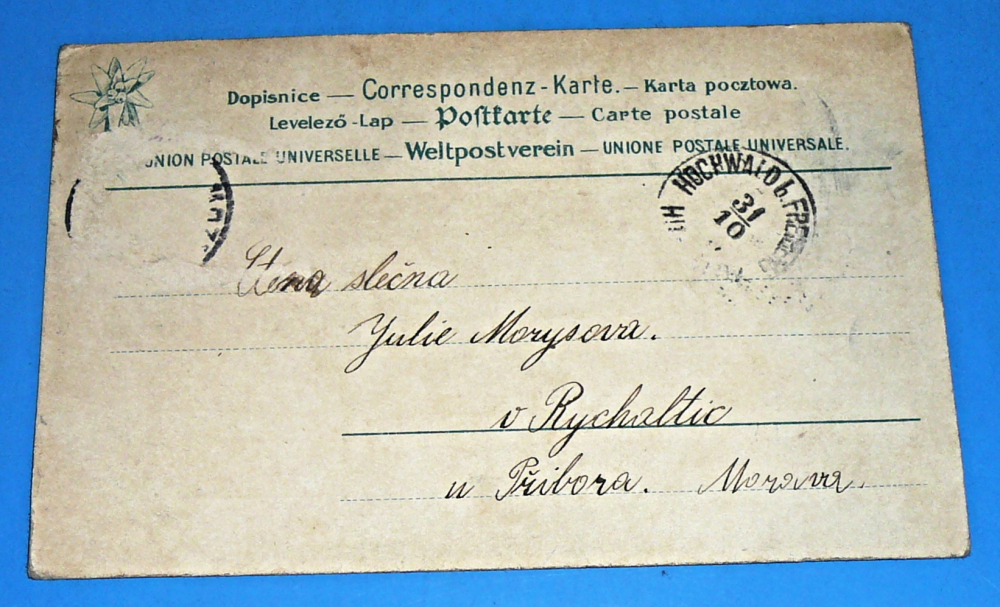 Dopisnice — Correspondenz-Karte. — Karta pocztowa.
Levelező-Lap — Postkarte — Carte postale
UNION POSTALE UNIVERSELLE — Weltpostverein — UNIONE POSTALE UNIVERSALE.
HOCHWALD b. FREI
31
10
Ctěná slečna
Julie Morysova.
v Rychaltic
u Příbora. Morava.